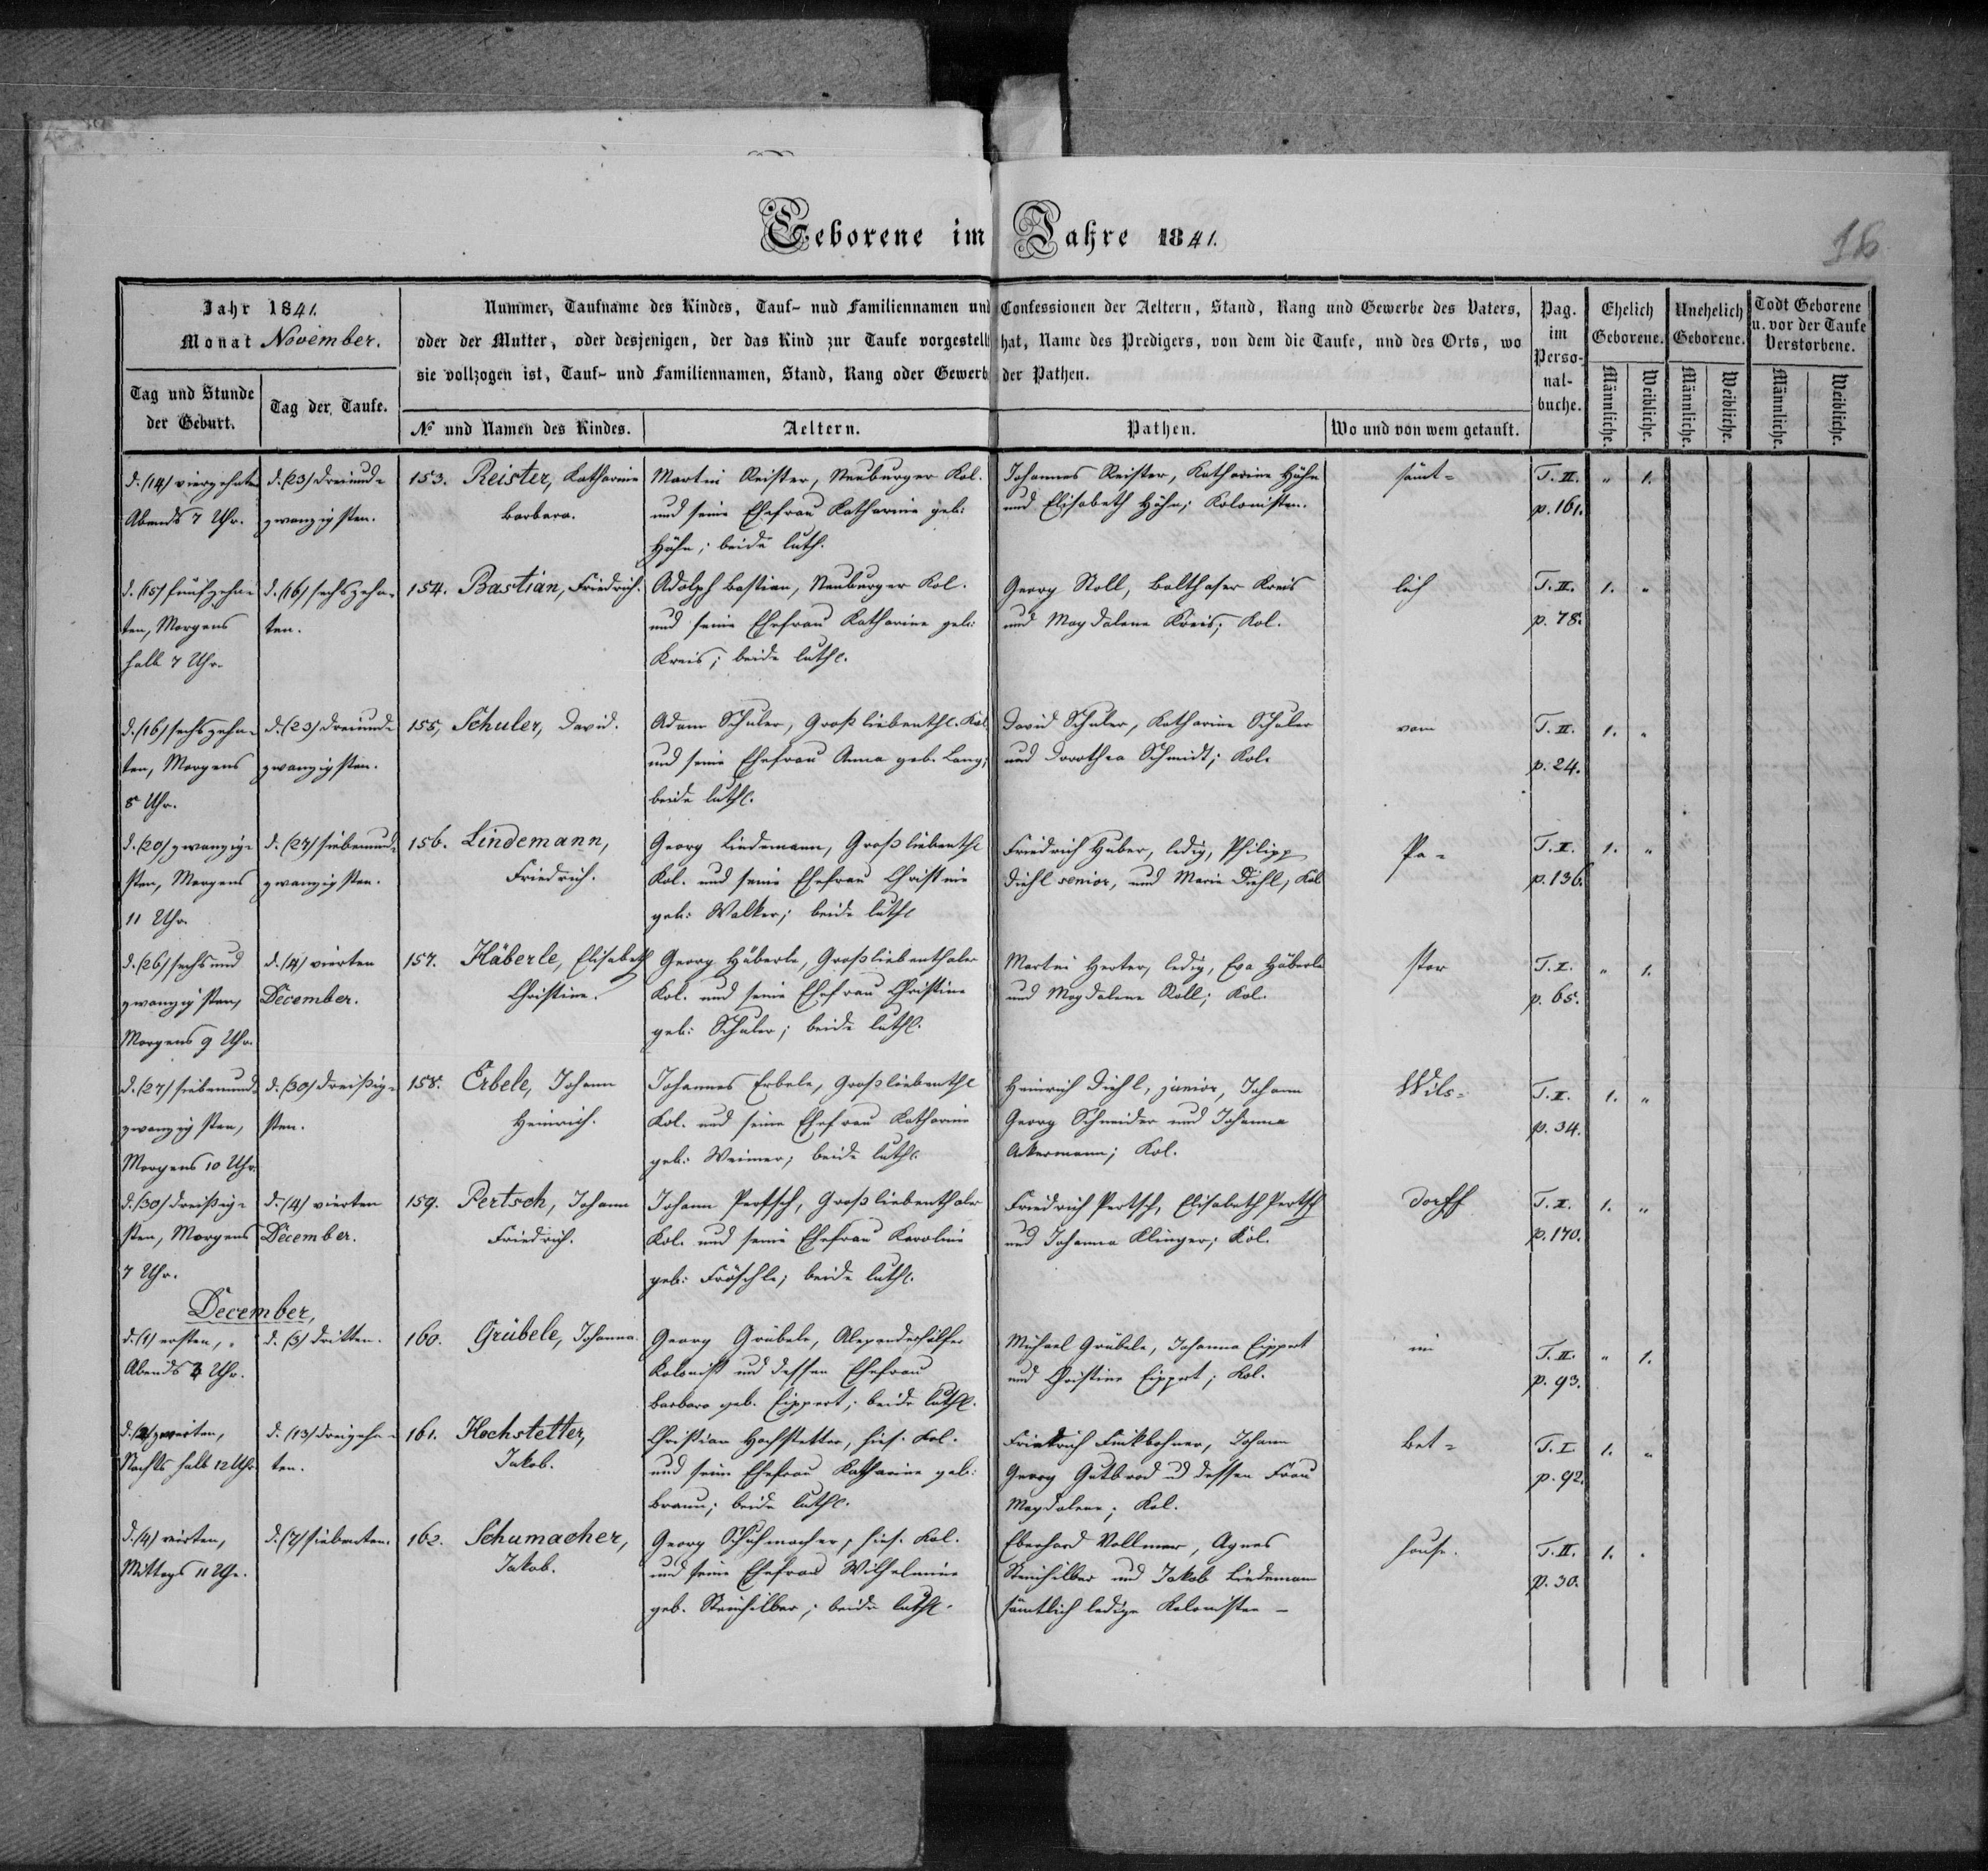 Geborene im Jahre 1841.
16
Jahr 1841.
Monat November.
Tag und Stunde
der Geburt.
Tag der Taufe.
Nummer, Taufname des Kindes, Tauf- und Familiennamen und Confessionen der Aeltern, Stand, Rang und Gewerbe des Vaters,
oder der Mutter, oder desjenigen, der das Kind zur Taufe vorgestellt hat, Name des Predigers, von dem die Taufe, und des Orts, wo
sie vollzogen ist, Tauf- und Familiennamen, Stand, Rang oder Gewerb der Pathen.
№ und Namen des Kindes.
Aeltern.
Pathen.
Wo und von wem getauft.
Pag.
im
Perso-
nal-
buche.
Ehelich
Geborene.
Unehelich
Geborene.
Todt Geborene
u. vor der Taufe
Verstorbene.
Männliche.
Weibliche.
Männliche.
Weibliche.
Männliche.
Weibliche.
d. (14) vierzehnten
Abends 7 Uhr.
d. (23) dreiund-
zwanzigsten.
153. Reister, Katharine
Barbara.
Martin Reister, Neuburger Kol.
und seine Ehefrau Katharine geb:
Höhn; beide luth.
Johannes Reister, Katharine Höhn
und Elisabeth Höhn; Kolonisten.
sämt-
T. II.
p. 161.
" 1.
d. (15) fünfzehn-
ten, Morgens
halb 7 Uhr.
d. (16) sechszehn-
ten.
154. Bastian, Friedrich.
Adolph Bastian, Neuburger Kol.
und seine Ehefrau Katharine geb:
Kreis; beide luth.
Georg Stoll, Balthaser Kreis
und Magdalena Kreis; Kol.
lich
T. II.
p. 78.
1. "
d. (16) sechszehn-
ten, Morgens
8 Uhr.
d. (23) dreiund-
zwanzigsten.
155, Schuler, David.
Adam Schuler, Großliebenthl. Kol.
und seine Ehefrau Anna geb. Lang;
beide luth.
David Schuler, Katharine Schuler
und Dorothea Schmidt; Kol.
vom
T. II.
p. 24.
1. "
d. (20) zwanzig-
sten, Morgens
11 Uhr.
d. (27) siebenund-
zwanzigsten.
156. Lindemann,
Friedrich.
Georg Lindemann, Großliebenthl
Kol. und seine Ehefrau Christine
geb: Walker; beide luth
Friedrich Huber, ledig, Philipp
Diehl senior, und Marie Diehl, Kol.
Pa-
T. I.
p. 136.
1. "
d. (26) sechsund
zwanzigsten,
Morgens 9 Uhr.
d. (4) vierten
December.
157. Häberle, Elisabeth
Christine.
Georg Häberle, Großliebenthaler
Kol. und seine Ehefrau Christine
geb: Schuler; beide luth.
Martin Herter, ledig, Eva Häberle
und Magdalena Roll; Kol.
stor
T. I.
p. 65.
" 1.
d. (27) siebenund-
zwanzigsten,
Morgens 10 Uhr.
d. (30) dreißig-
sten.
158. Erbele, Johann
Heinrich.
Johannes Erbele, Großliebenthl
Kol. und seine Ehefrau Katharine
geb: Weimer; beide luth.
Heinrich Diehl, junior, Johann
Georg Schneider und Johanna
Ackermann; Kol.
Wils-
T. I.
p. 34.
1. "
d. (30) dreißig-
sten, Morgens
7 Uhr.
d. (4) vierten
December.
159. Pertsch, Johann
Friedrich.
Johann Pertsch, Großliebenthaler
Kol. und seine Ehefrau Karoline
geb: Fröschle; beide luth.
Friedrich Pertsch, Elisabeth Pertsch
und Johanna Klinger; Kol.
dorff
T. I.
p. 170.
1. "
December,
d. (1) ersten,
Abends 4 Uhr.
d. (3) dritten.
160. Grübele, Johanna.
Georg Grübele, Alexanderhilfer
Kolonist und dessen Ehefrau
Barbara geb. Eippert; beide luth.
Michael Grübele, Johanna Eippert
und Christine Eippert; Kol.
im
T. II.
p. 93.
" 1.
d. (2) zweiten,
Nachts halb 12 Uhr
d. (13) dreizehn-
ten.
161. Hochstetter,
Jakob.
Christian Hochstetter, hies. Kol.
und seine Ehefrau Katharine geb:
Braun; beide luth.
Friedrich Finkbohner, Johann
Georg Gutbrod u dessen Frau
Magdalena; Kol.
Bet-
T. I
p. 92.
1. "
d. (4) vierten,
Mittags 11 Uhr.
d. (7) siebenten.
162. Schumacher,
Jakob.
Georg Schuhmacher, hies. Kol.
und seine Ehefrau Wilhelmine
geb. Steinhilber; beide luth.
Eberhard Vollmer, Agnes
Steinhilber und Jakob Lindemann
sämtlich ledige Kolonisten -
hause.
T. II.
p. 30.
1. "